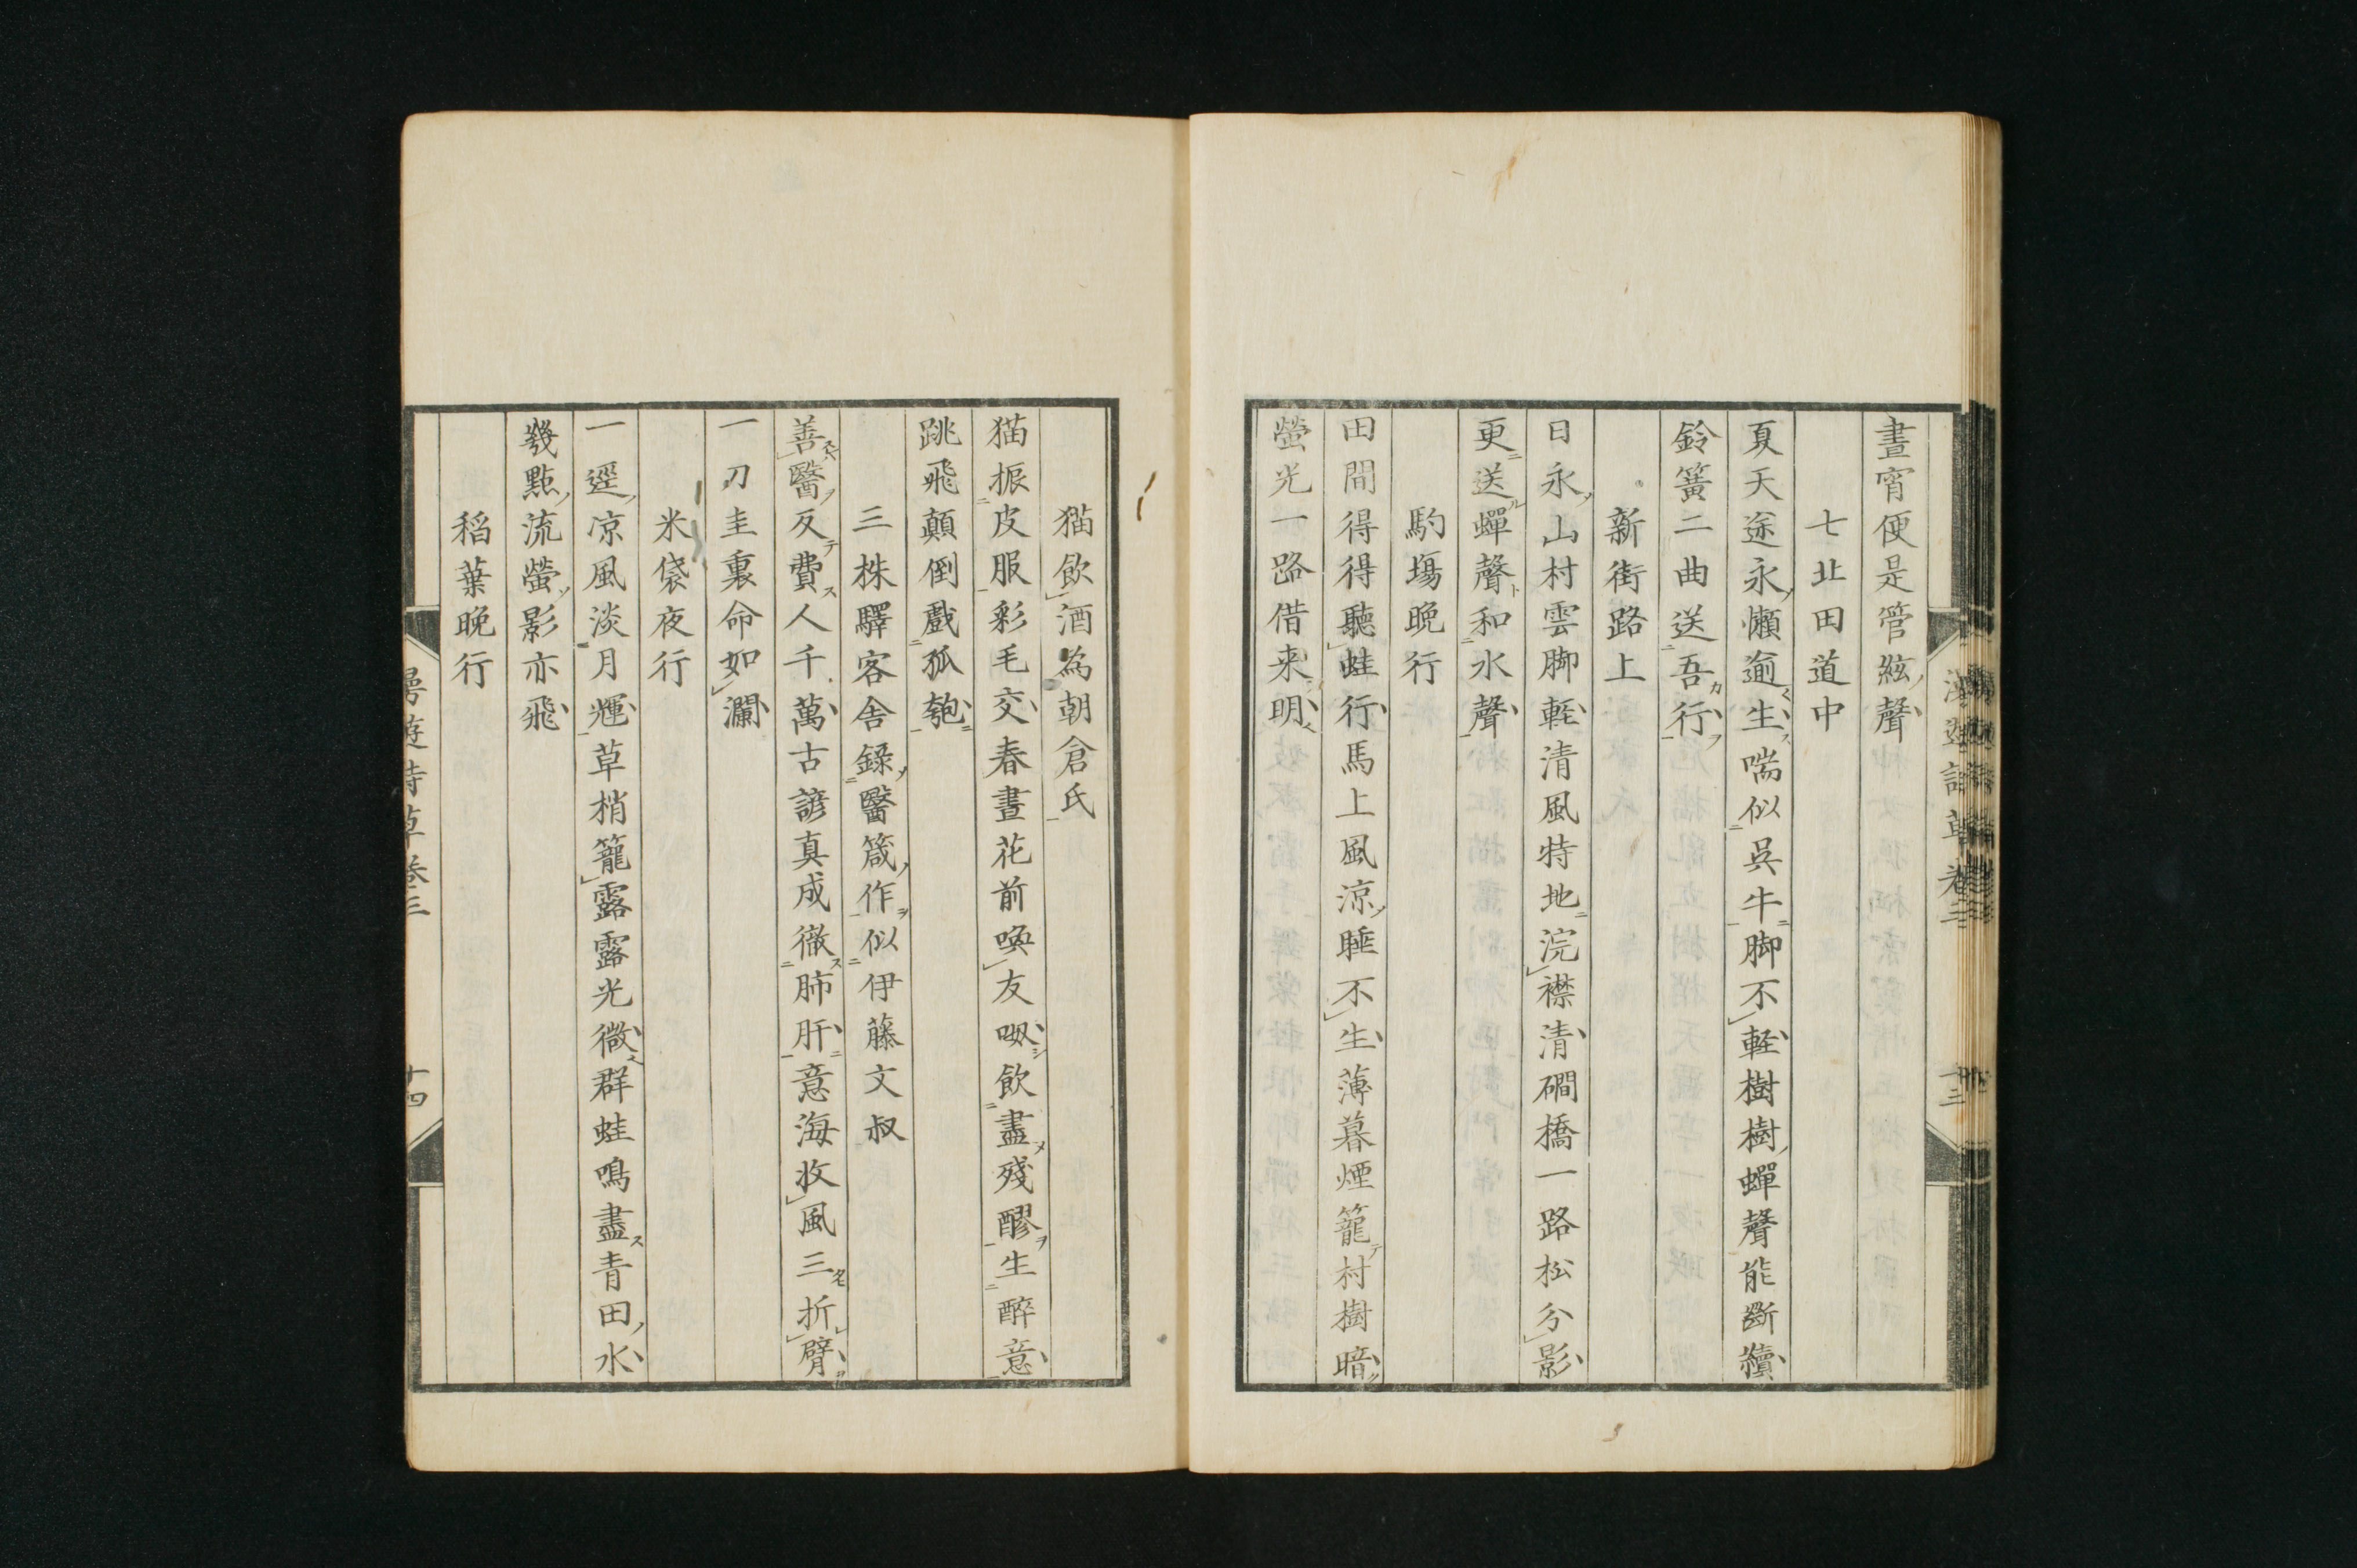 晝宵便是管絃聲
七北田道中
夏天途永懶逾生喘似呉牛脚不輕樹樹蟬聲能斷續
鈴簧二曲送吾行
新街路上
日永山村雲脚輕清風特地浣襟清磵橋一路松分影
更送蟬聲和水聲
駒塲晩行
田間得得聽蛙行馬上風凉睡不生薄暮煙籠村樹暗
螢光一路借来明
猫飲酒為朝倉氏
猫振皮服彩毛交春晝花前喚友呶飲盡殘醪生醉意
跳飛顛倒戲狐匏
三株驛客舎録醫箴作似伊藤文叔
善醫反費人千萬古諺真成徹肺肝意海收風三折臂
一刀圭裏命如瀾
米袋夜行
一逕凉風淡月輝草梢籠露露光微群蛙鳴盡青田水
幾點流螢影亦飛
稻葉晩行
漫遊詩草卷三
十四